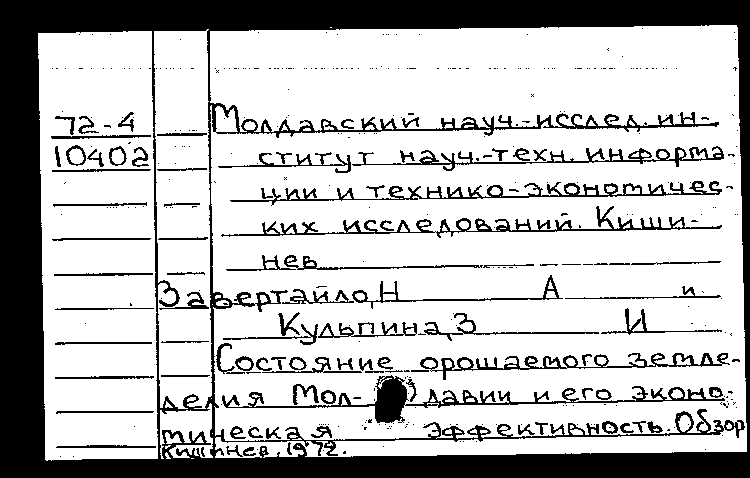 72-4 Молдавский науч.-исслед. ин-
10402 ститут науч.-техн. информа-
ции и технико-экономичес-
ких исследований. Киши-
нев
Завертайло, Н А и
Кульпина, З И
Состояние орошаемого земле-
делия Мол-давии и его эконо-
мическая эффективность. Обзор
Кишинев, 1972.